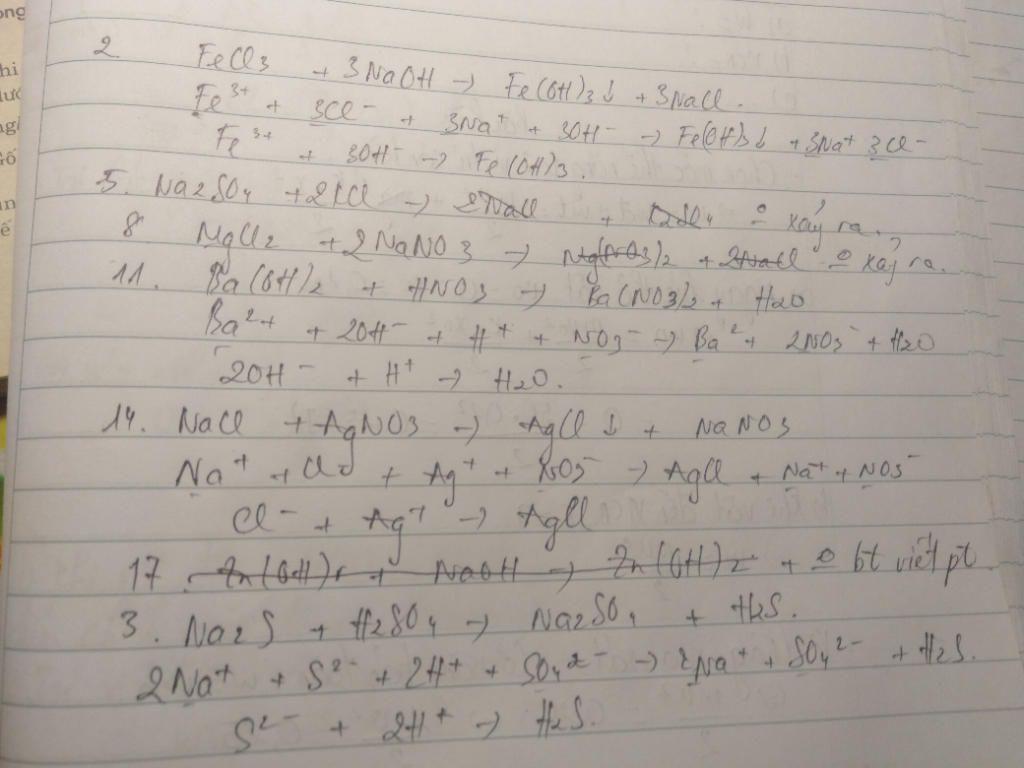 2 FeCl3 + 3NaOH → Fe(OH)3↓ + 3NaCl.
Fe³⁺ + 3Cl⁻ + 3Na⁺ + 3OH⁻ → Fe(OH)3↓ + 3Na⁺ 3Cl⁻
Fe³⁺ + 3OH⁻ → Fe(OH)3.
5. Na2SO4 + 2KCl → 2NaCl + K2SO4 ⁰ xảy ra.
8 MgCl2 + 2NaNO3 → Mg(NO3)2 + 2NaCl ⁰ xảy ra.
11. Ba(OH)2 + HNO3 → Ba(NO3)2 + H2O
Ba²⁺ + 2OH⁻ + H⁺ + NO3⁻ → Ba²⁺ 2NO3⁻ + H2O
2OH⁻ + H⁺ → H2O.
14. NaCl + AgNO3 → AgCl↓ + NaNO3
Na⁺ + Cl⁻ + Ag⁺ + NO3⁻ → AgCl + Na⁺ + NO3⁻
Cl⁻ + Ag⁺ → AgCl
17. Zn(OH)2 + NaOH → Zn(OH)2 + ⁰ bt viết pt
3. Na2S + H2SO4 → Na2SO4 + H2S.
2Na⁺ + S²⁻ + 2H⁺ + SO4²⁻ → 2Na⁺ + SO4²⁻ + H2S.
S²⁻ + 2H⁺ → H2S.